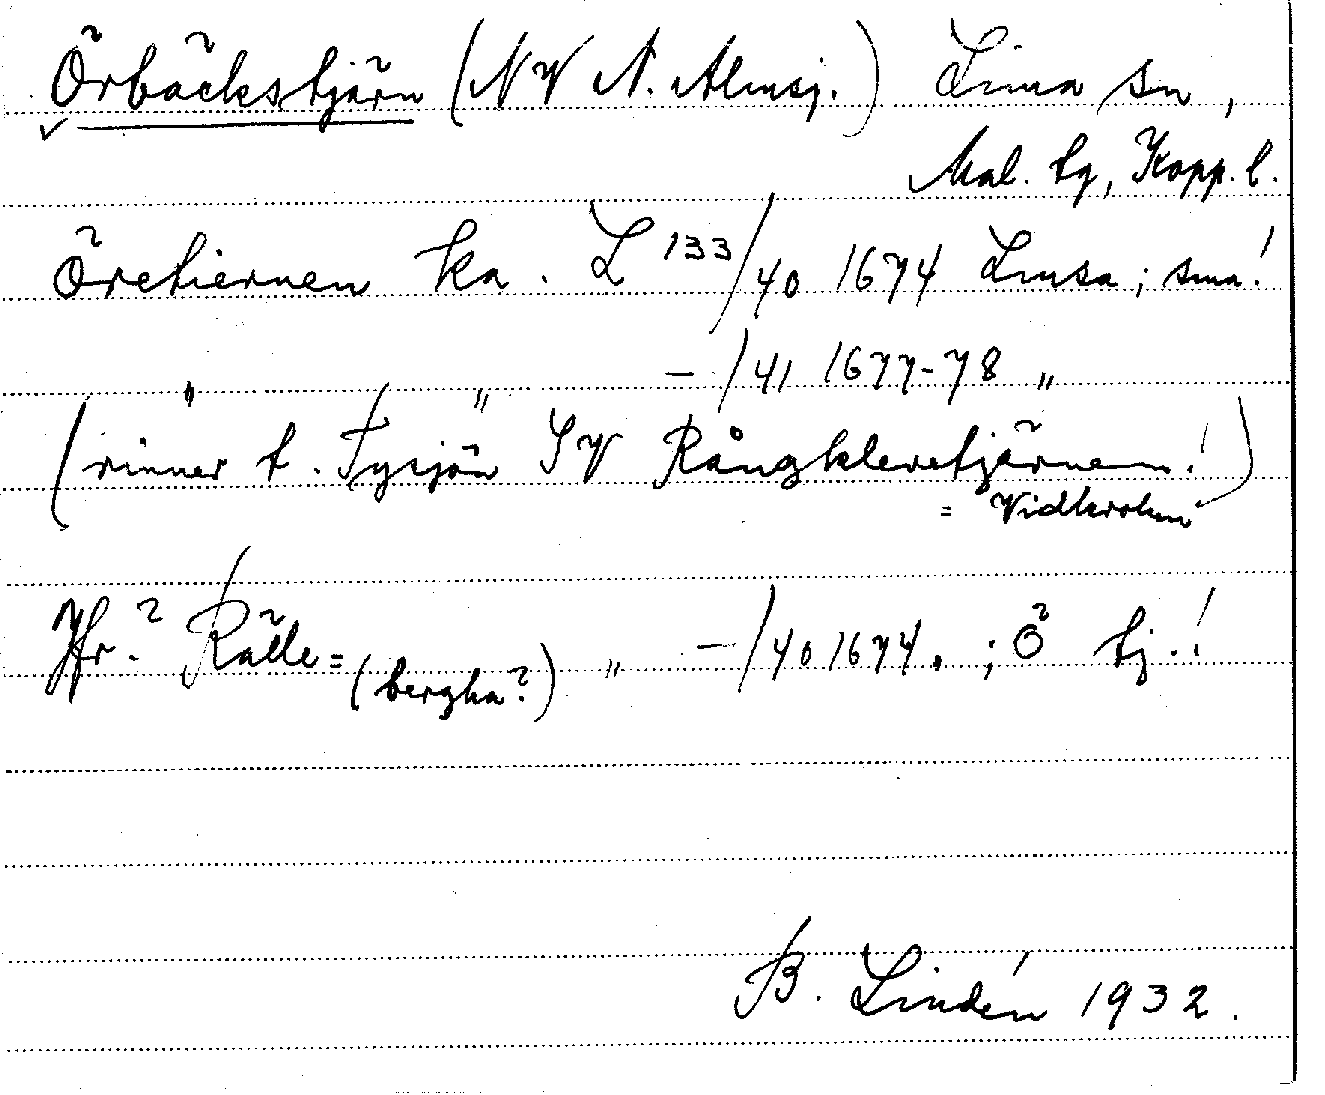 Örbäckstjärn (NV N. Almsj.) Lima sn,
Mal. tg, Kopp. l.
Öretiernen ka. L 133/40 1674 Limsa; sma!
" " - /41 1677-78 "
(rinner t. Tysjön SV Rångkleretjärnen!)
= Vidkroken
Jfr? Rälle= (bergha?) " - /40 1674. ; Ö tj.!
B. Lindén 1932.